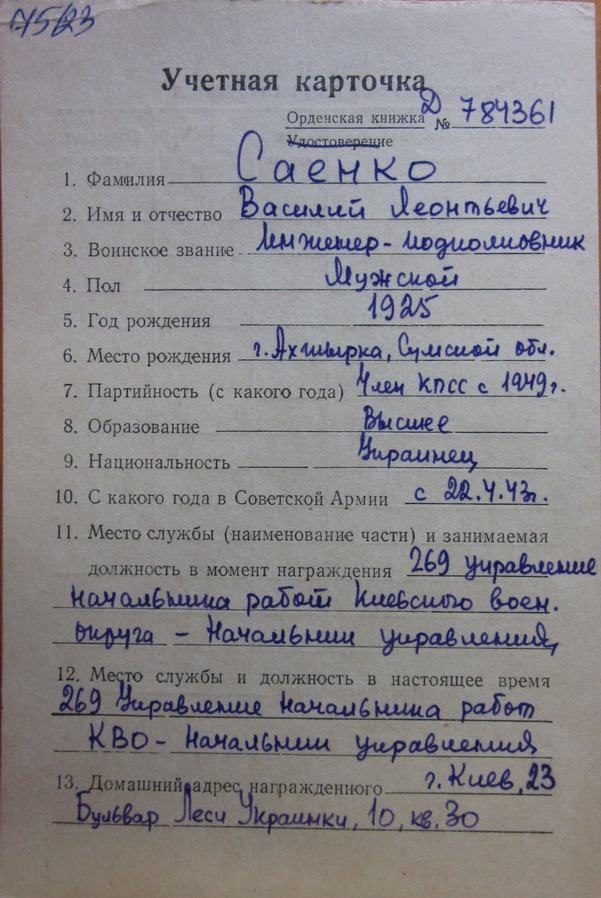 7523
Учетная карточка
Орденская книжка Д № 784361
Удостоверение
1. Фамилия Саенко
2. Имя и отчество Василий Леонтьевич
3. Воинское звание Инженер-подполковник
4. Пол Мужской
5. Год рождения 1925
6. Место рождения г. Ахтырка, Сумской обл.
7. Партийность (с какого года) Член КПСС с 1949 г.
8. Образование Высшее
9. Национальность Украинец
10. С какого года в Советской Армии с 22.4.43г.
11. Место службы (наименование части) и занимаемая
должность в момент награждения 269 управление
начальника работ Киевского воен.
округа - Начальник управления,
12. Место службы и должность в настоящее время
269 Управление Начальника работ
КВО - Начальник управления
13. Домашний адрес награжденного г. Киев, 23
Бульвар Леси Украинки, 10, кв. 30